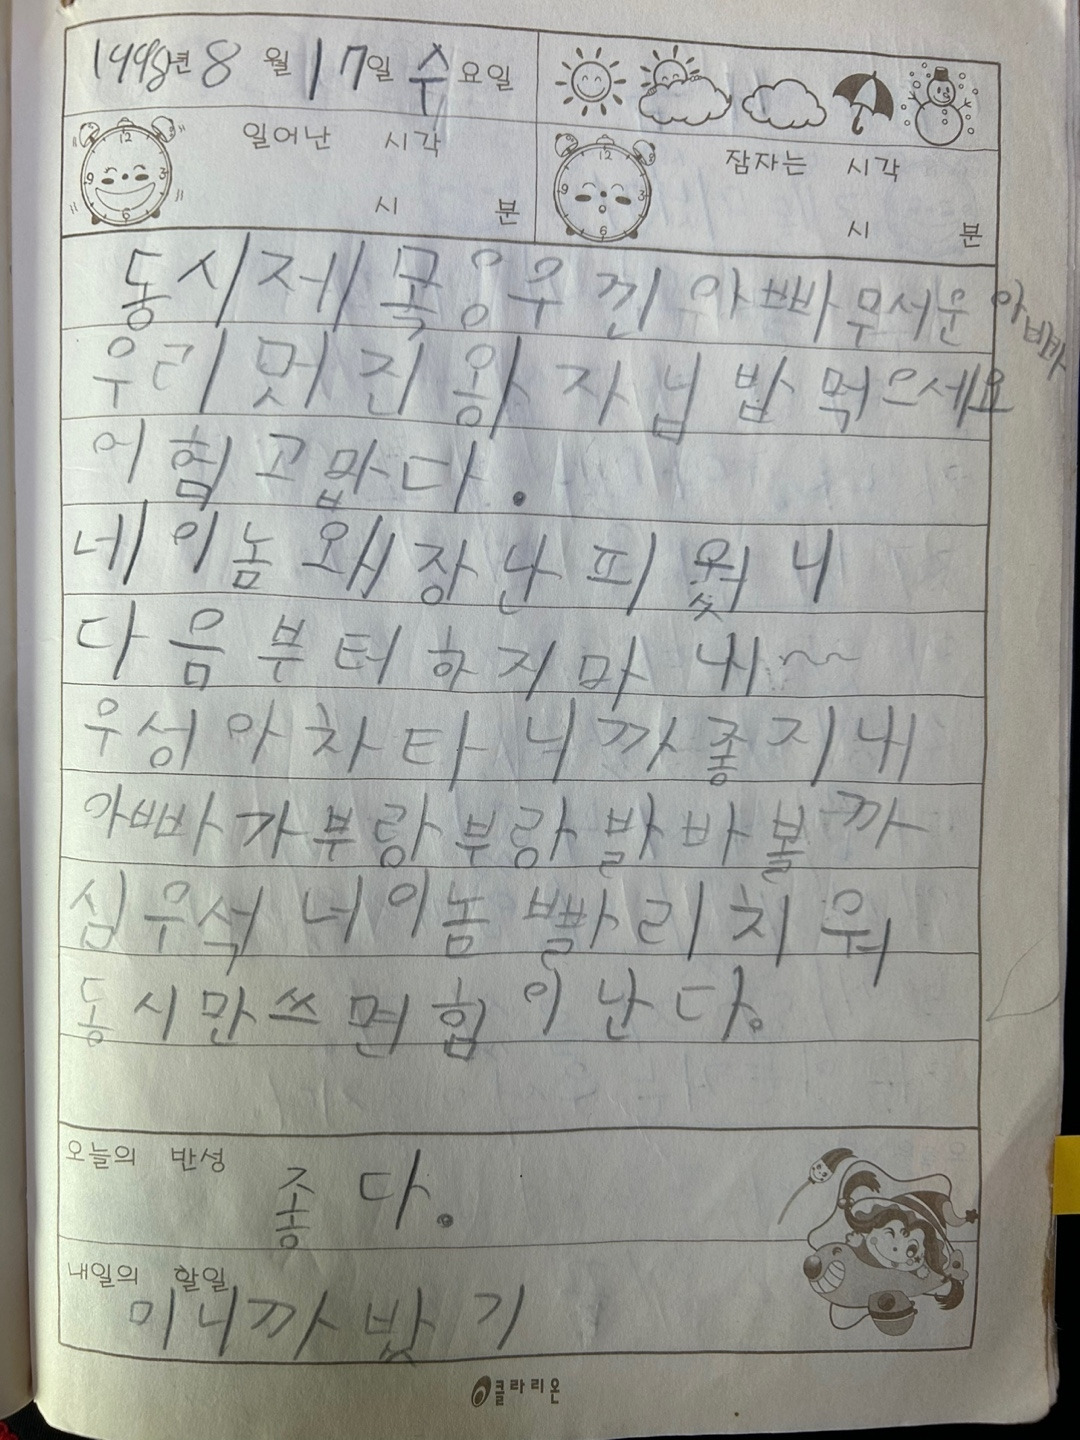 1998년 8월 17일 수요일
일어난 시각
시 분
잠자는 시각
시 분
동시 제목 웅우낀 아빠 무서운 아빠
우리 멋진 왕자님 밥 먹으세요
어험 고맙다.
네 이놈 왜 장난 피웠니
다음부터 하지마 내~~
우성아 차타닉까 좋지 내
아빠가 부랑부랑 발바볼까
심우석 너 이놈 빨리 치워
동시만 쓰면 힘이 난다.
오늘의 반성
좋다.
내일의 할일
미니까 밨기
클라리온